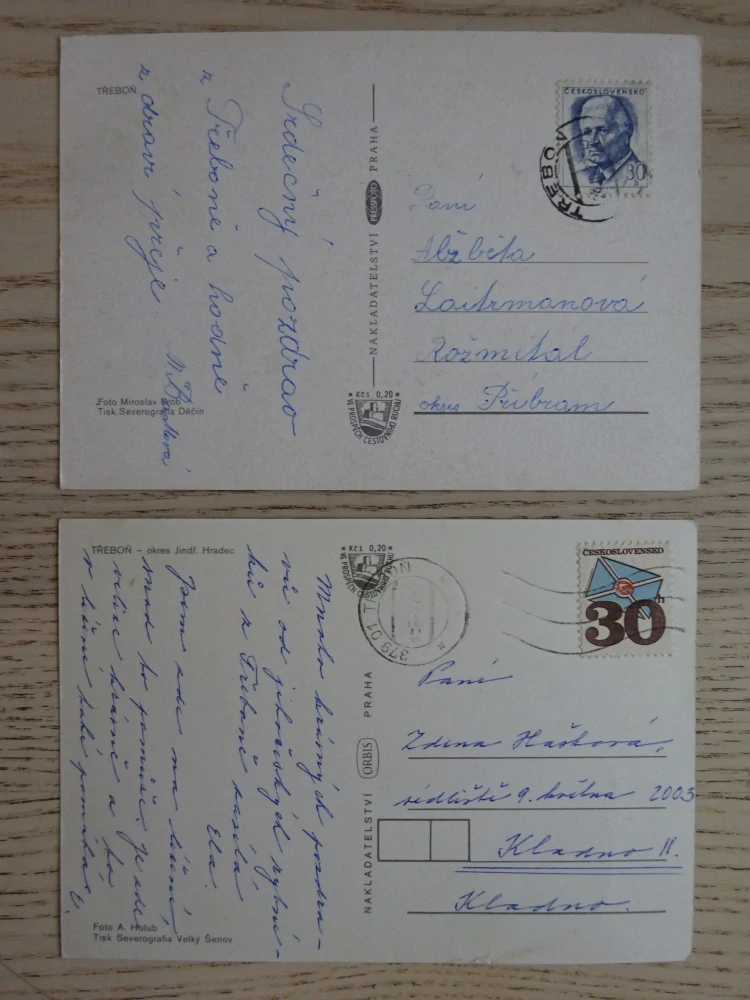 TŘEBOŇ
Srdečný pozdrav
z Třeboně a hodně
zdraví přeje
Foto Miroslav Krob
Tisk Severografia Děčín
NAKLADATELSTVÍ PRESSFOTO PRAHA
* Kčs 0,20 *
VE PROSPĚCH CESTOVNÍHO RUCHU
ČESKOSLOVENSKO
30h
TŘEBOŇ
Paní
Alžběta
Laitrmanová
Rožmitál
okres Příbram
TŘEBOŇ – okres Jindř. Hradec
Mnoho krásných pozdra-
vů od jihočeských rybní-
ků z Třeboně zasílá
Ela.
Jsem zde na léčení,
snad to pomůže. Je zde
velice krásně a to
k léčení také pomáhá.
Foto A. Holub
Tisk Severografia Velký Šenov
NAKLADATELSTVÍ ORBIS PRAHA
* Kčs 0,20 *
VE PROSPĚCH CESTOVNÍHO RUCHU
379 01 TŘEBOŇ
ČESKOSLOVENSKO
30h
Paní
Zdena Hašková,
sídliště 9. května 2003
Kladno II.
Kladno.